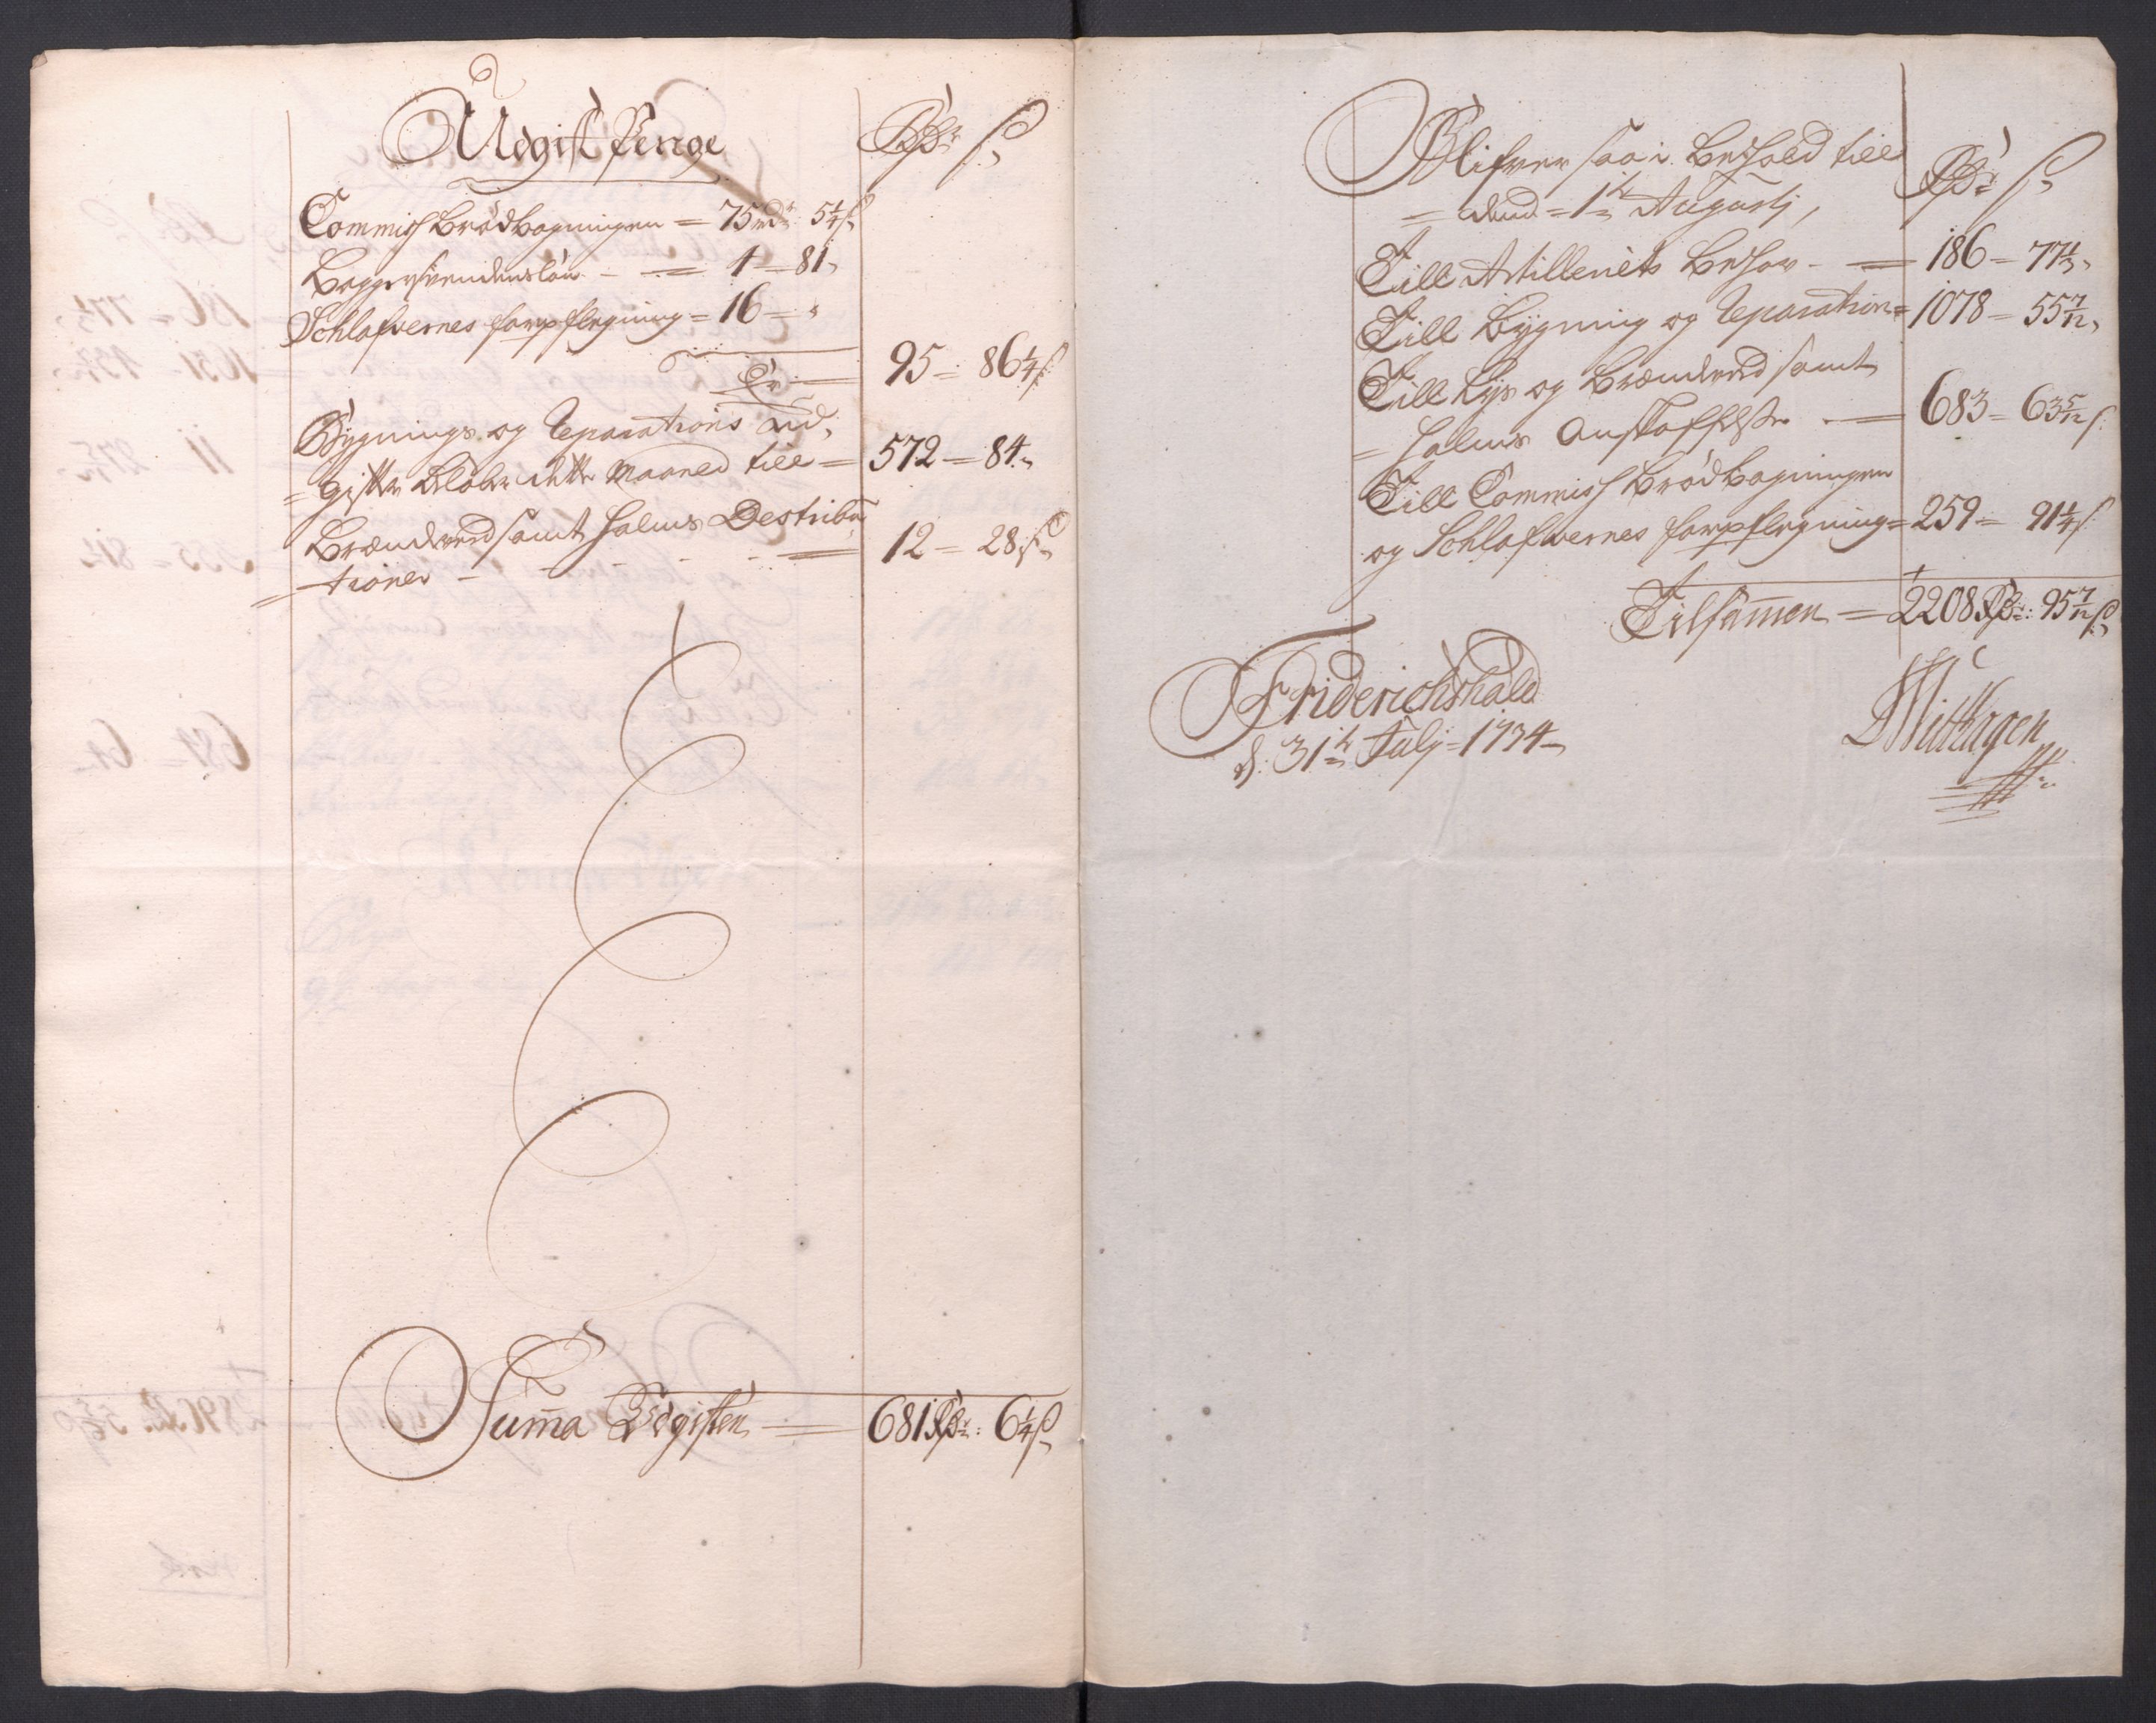 Udgift Penge Rdr ß
Commiss Brødbagningen = 75 rdr 5 1/4 ß
Baggersvendens løn - - = 4 - 81 „
Schlafvernes forpflegning = 16 = „
Er = 95 = 86 1/4 ß
Bygnings og Reparations Ud,
= gifter beløber dette Maaned till = 572 = 84 „
Brændeved samt halms Destribu
= tioner - - - = 12 = 28 ß
Summa Udgiften = 681 Rdr: 6 1/4 ß
Blifver saa i behold till Rdr ß
= dend = 1te Augustj,
Till Artilleriets behov - = 186 = 77 1/3 „
Till Bygning og Reparation = 1078 = 55 7/12 „
Till Lys og Brændeved samt
= halms Anskaffelse - = 683 = 63 5/12 ß
Till Commiss Brødbagningen
og Schlafvernes forpflegning = 259 = 91 1/4 ß
Tilsammen = 2208 Rdr: 95 7/12 ß
Friderichshald
d: 31te Julj = 1734